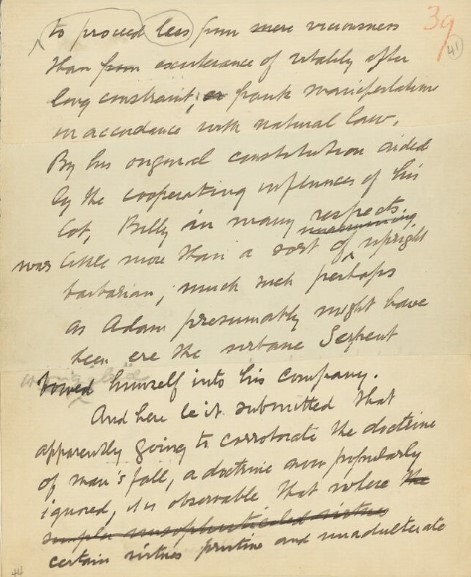 39
41
to proceed less from mere viciousness
than from exuberance of vitality after
long constraint; or frank manifestations
in accordance with natural law.
By his original constitution aided
by the cooperating influences of his
lot, Billy in many respects
was little more than a sort of upright
barbarian, much such perhaps
as Adam presumably might have
been ere the urbane Serpent
himself into his company.
And here be it submitted that
apparently going to corroborate the doctrine
of man's fall, a doctrine now popularly
ignored, it is observable that where the
simple unsophisticated virtues
certain virtues pristine and unadulterate